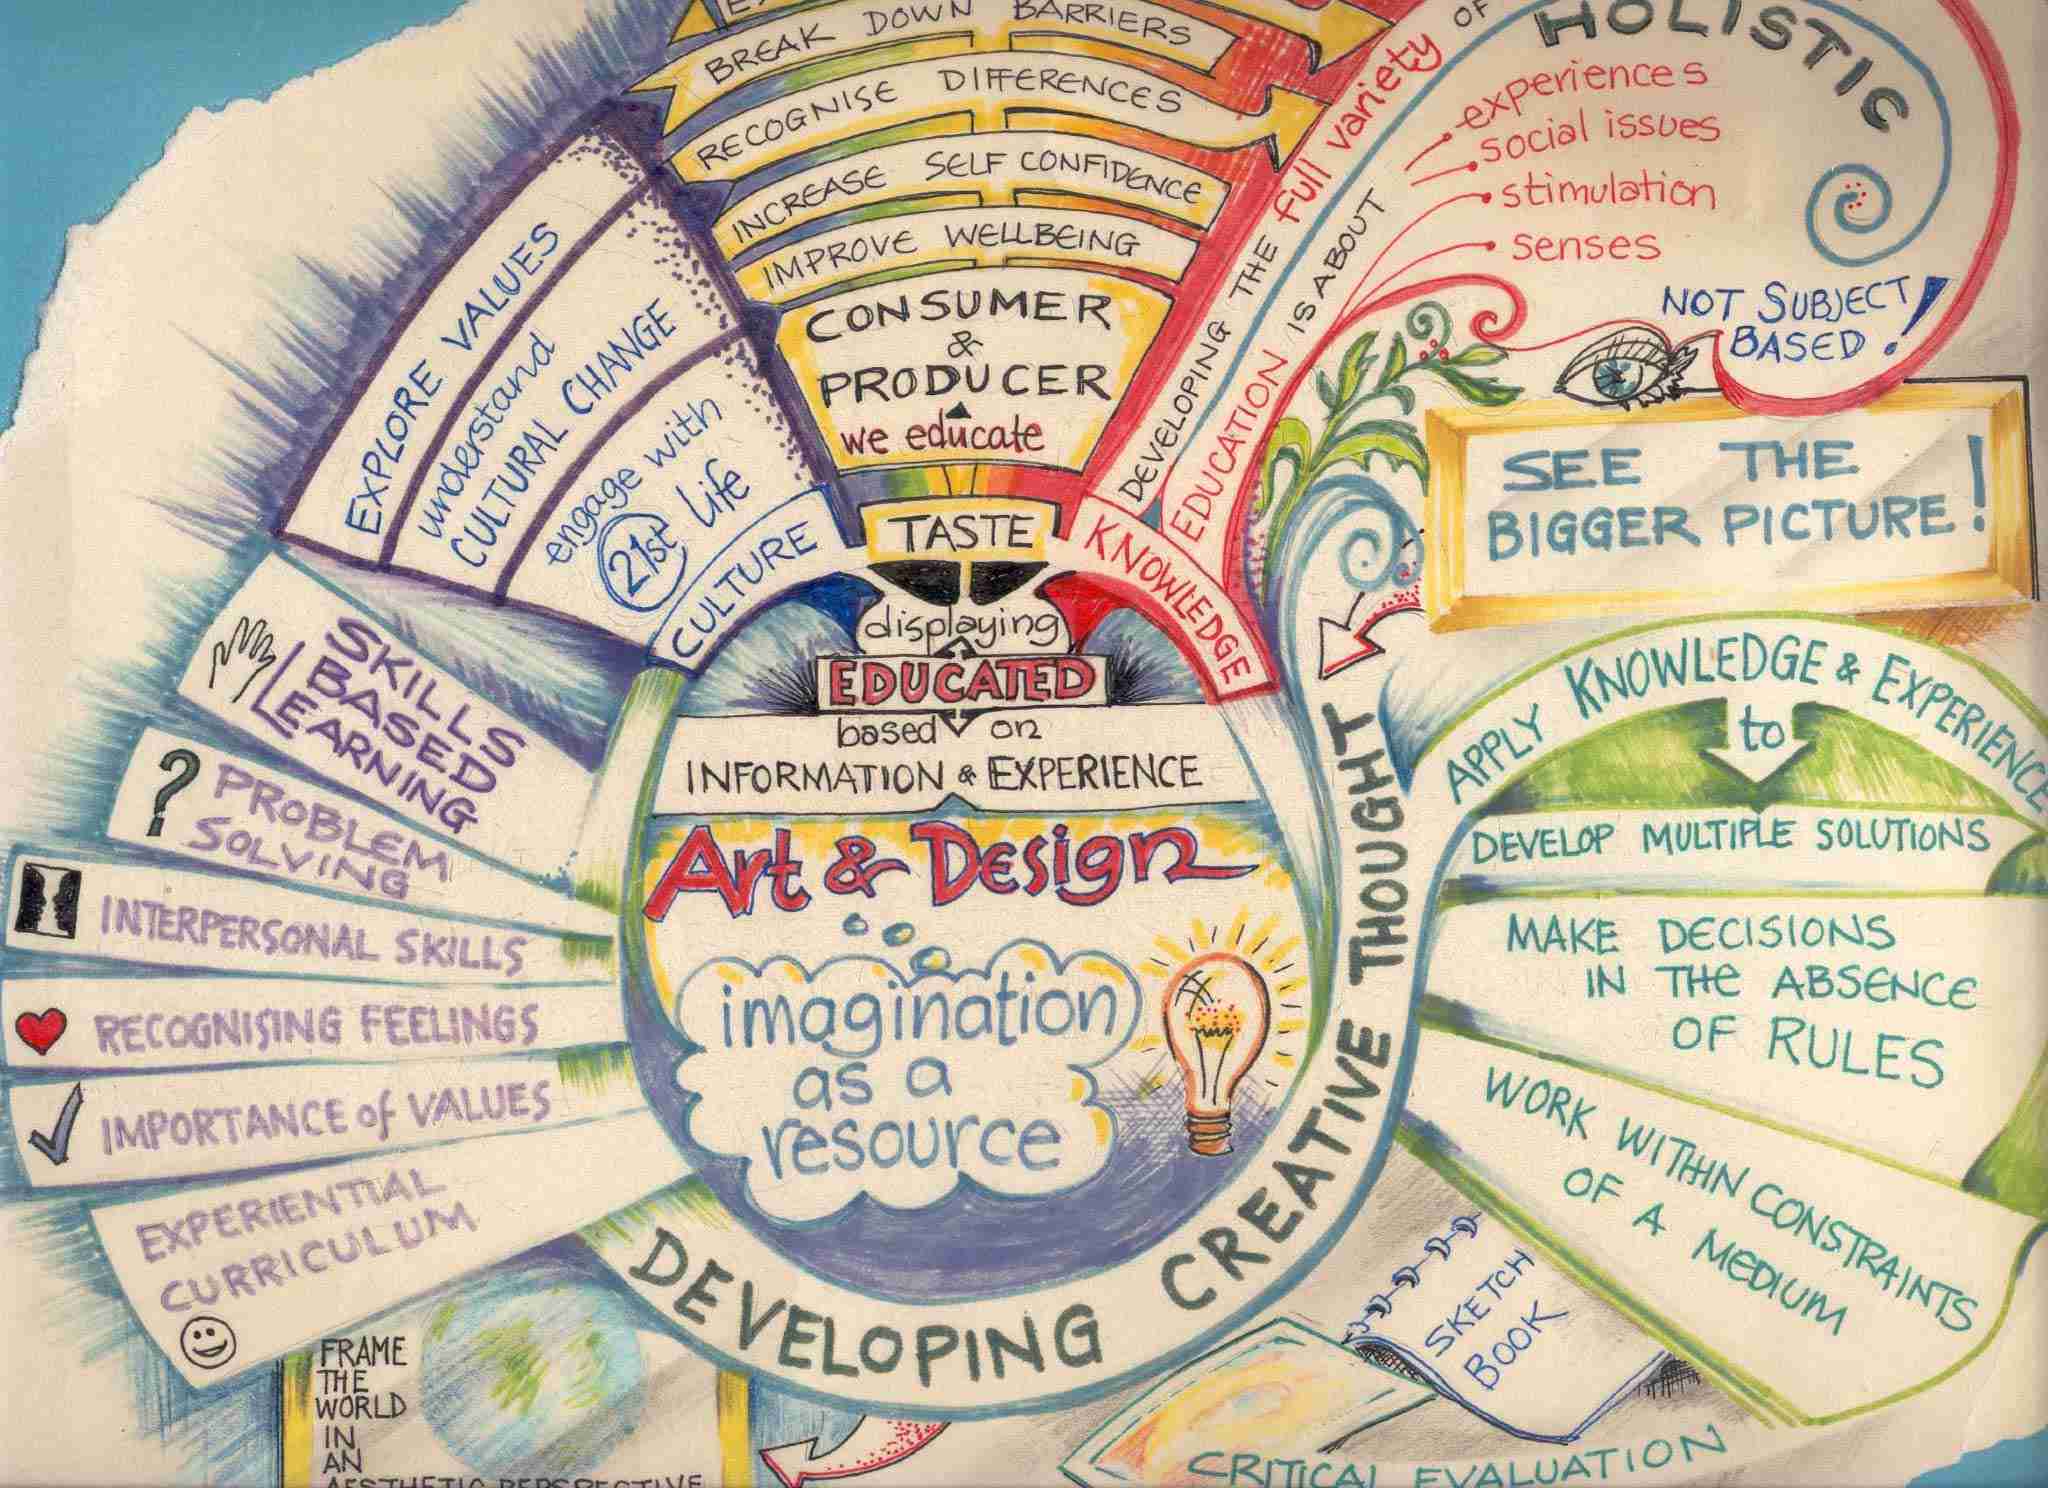 BREAK DOWN BARRIERS
RECOGNISE DIFFERENCES
INCREASE SELF CONFIDENCE
IMPROVE WELLBEING
CONSUMER
&
PRODUCER
we educate
TASTE
displaying
EDUCATED
based on
INFORMATION & EXPERIENCE
Art & Design
imagination
as a
resource
EXPLORE VALUES
understand
CULTURAL CHANGE
engage with
21st life
CULTURE
KNOWLEDGE
DEVELOPING THE full variety OF
EDUCATION IS ABOUT
HOLISTIC
experiences
social issues
stimulation
senses
NOT SUBJECT
BASED!
SEE THE
BIGGER PICTURE!
SKILLS
BASED
LEARNING
PROBLEM
SOLVING
INTERPERSONAL SKILLS
RECOGNISING FEELINGS
IMPORTANCE of VALUES
EXPERIENTIAL
CURRICULUM
DEVELOPING CREATIVE THOUGHT
APPLY KNOWLEDGE & EXPERIENCE
to
DEVELOP MULTIPLE SOLUTIONS
MAKE DECISIONS
IN THE ABSENCE
OF RULES
WORK WITHIN CONSTRAINTS
OF A MEDIUM
SKETCH
BOOK
CRITICAL EVALUATION
FRAME
THE
WORLD
IN
AN
AESTHETIC PERSPECTIVE